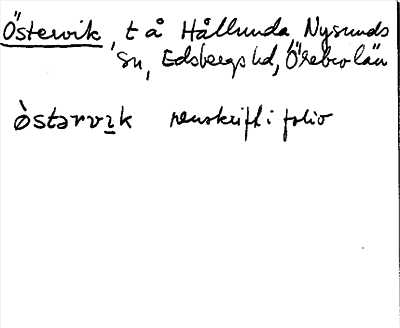 Östervik, t å Hållunda, Nysunds
sn, Edsbergs hd, Örebro län
ò̀stərvɪ̲k renskrift i folio